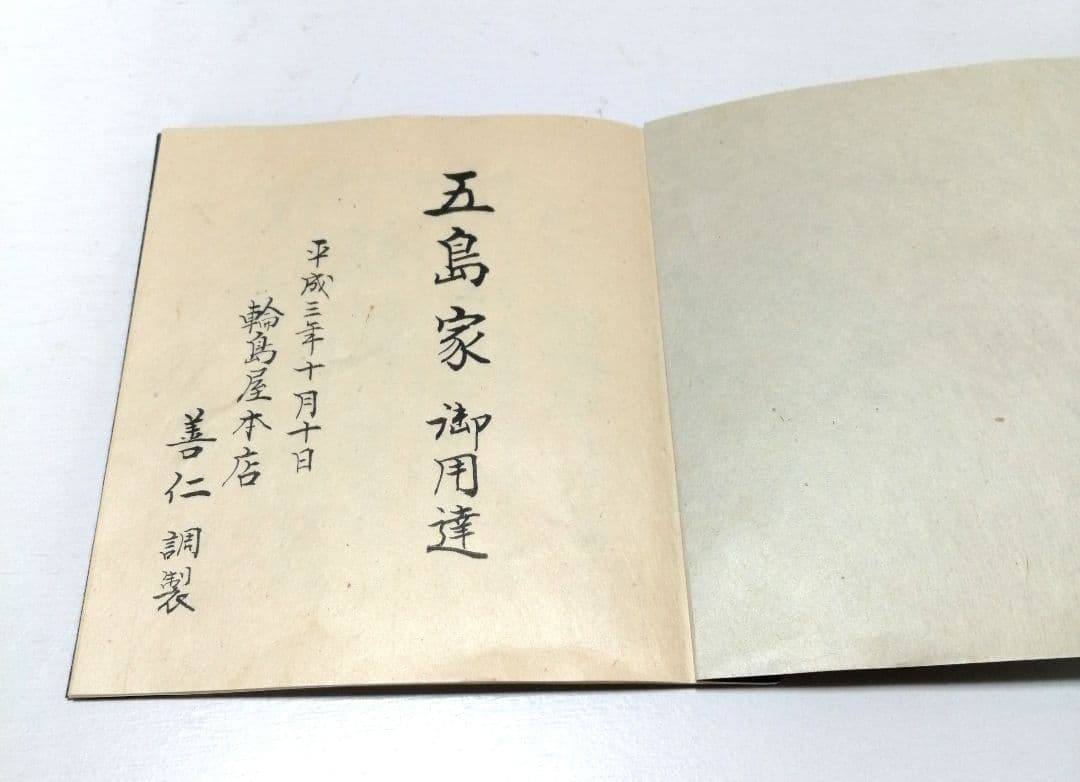 五島家 御用達
平成三年十月十日
輪島屋本店
善仁 調製